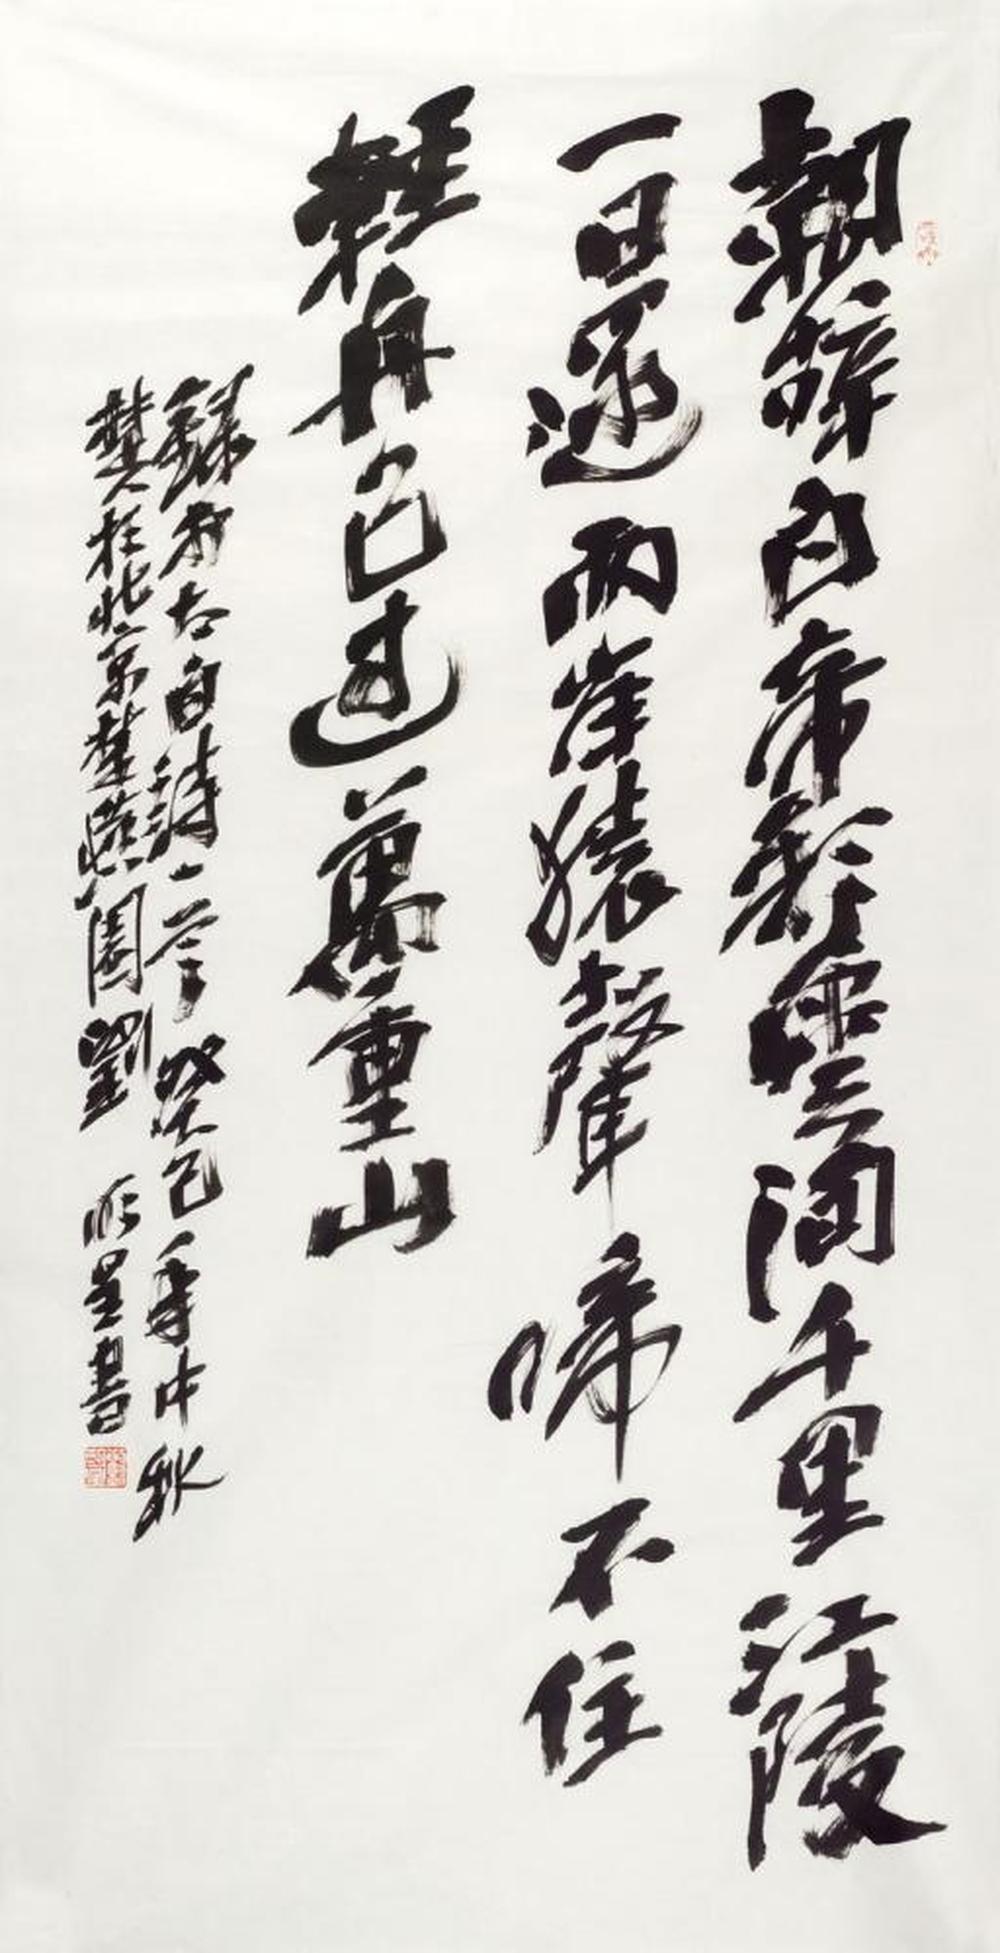 朝辞白帝彩雲間千里江陵
一日還兩岸猿聲啼不住
輕舟已過萬重山
錄李太白詩一首癸巳年中秋
樊於北京楚園劉書